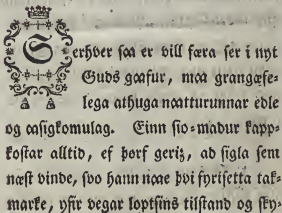 Serhver saa er vill færa ser i nyt
Guds gaafur, maa grangæfe-
lega athuga naatturunnar edle
og aasigkomulag. Einn sio-madur kapp-
kostar alltid, ef þorf geriz, ad sigla sem
næst vinde, svo hann naae þvi fyrisetta tak-
marke, yfir vegar loptsins tilstand og sky-